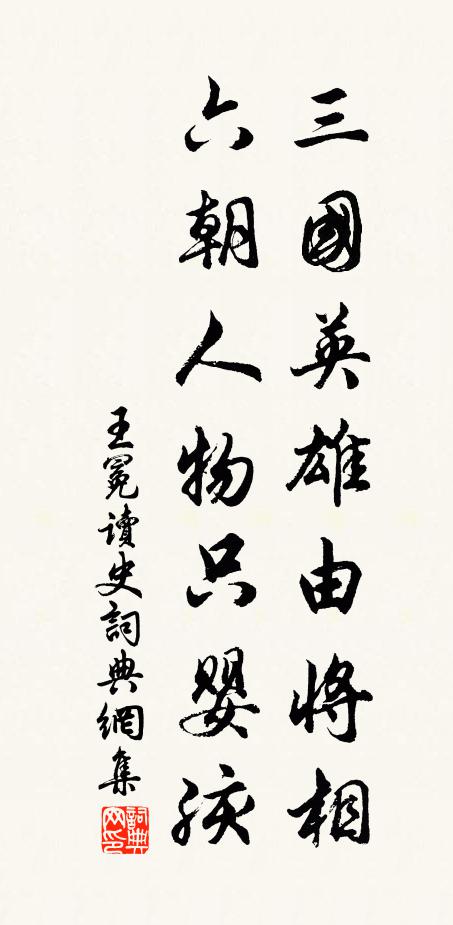 三國英雄由將相
六朝人物只嬰孩
王冕讀史詞典網集
詞典網印